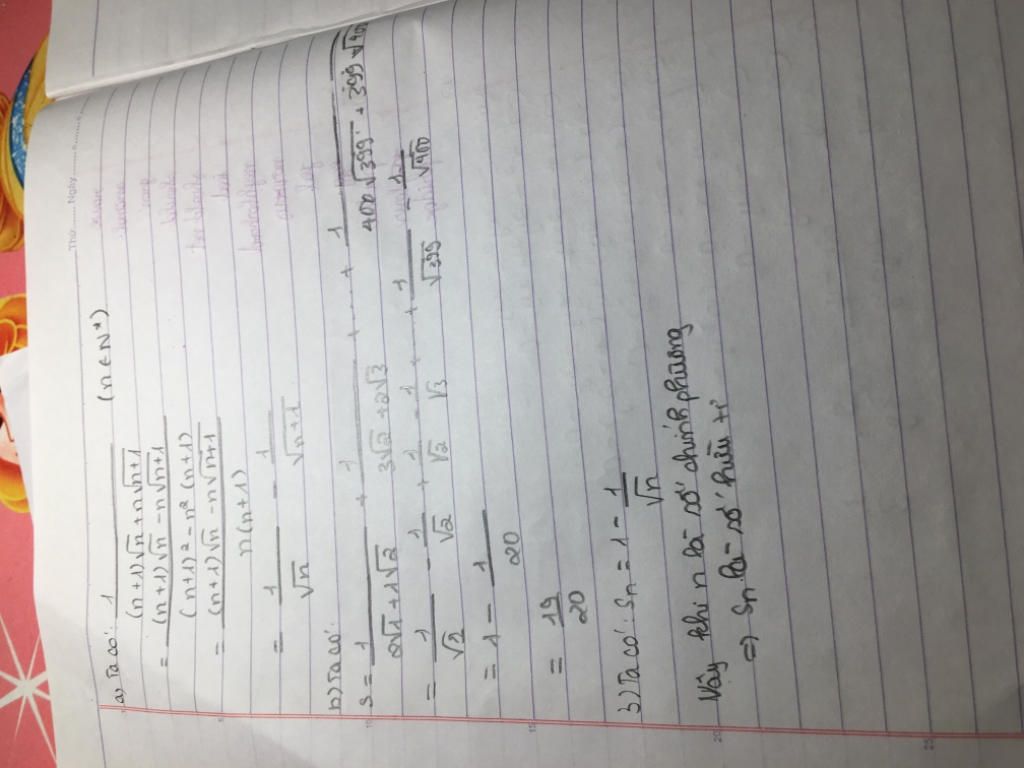 Thứ...... Ngày..........
a) Ta có: 1/((n+1)√n + n√(n+1)) (n ∈ N*)
= ((n+1)√n - n√(n+1))/((n+1)² - n²(n+1))
= ((n+1)√n - n√(n+1))/(n(n+1))
= 1/√n - 1/√(n+1)
b) Ta có:
S = 1/(2√1 + 1√2) + 1/(3√2 + 2√3) + ... + 1/(400√399 + 399√400)
= 1/√2 - 1/√2 + 1/√2 - 1/√3 + ... + 1/√399 - 1/√400
= 1 - 1/20
= 19/20
b) Ta có: Sn = 1 - 1/√n
Vậy khi n là số chính phương
=> Sn là số hữu tỉ